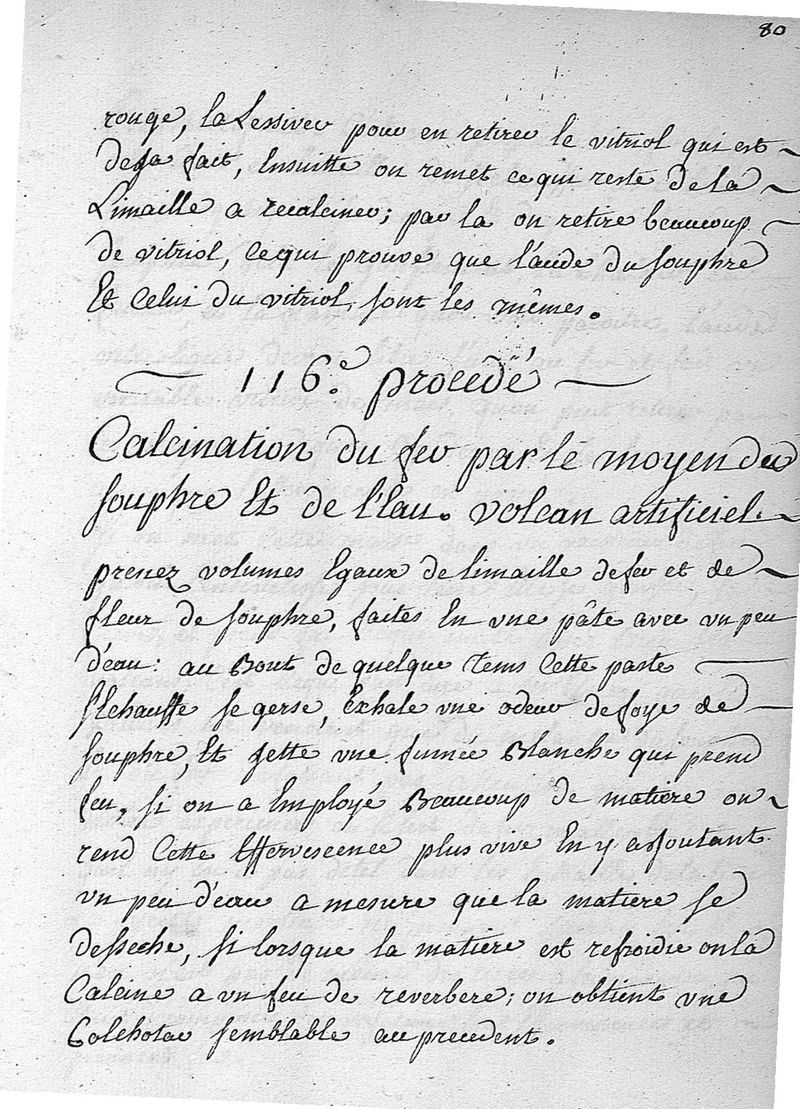 80
rouge, la Lessiver pour en retirer le vitriol qui est
deja fait, Ensuitte on remet ce qui reste de la
Limaille a recalciner; par la on retire beaucoup
de vitriol, ce qui prouve que l'acide du souphre
Et Celui du vitriol, sont les mêmes.
116.e procedé
Calcination du fer par le moyen du
souphre Et de l'Eau. volcan artificiel.
prenez volumes Egaux de limaille de fer et de
fleur de souphre, faites En une pâte avec un peu
d'eau: au Bout de quelque Tems Cette paste
s'Echauffe se gerse, Exhale une odeur de foye de
souphre, Et jette une fumée Blanche qui prend
feu, si on a Employé Beaucoup de matiere on
rend Cette Effervescence plus vive En y ajoutant
un peu d'eau a mesure que la matiere se
desseche, si lorsque la matiere est refroidie on la
Calcine a un feu de reverbere; on obtient une
Colchotar semblable au precedent.